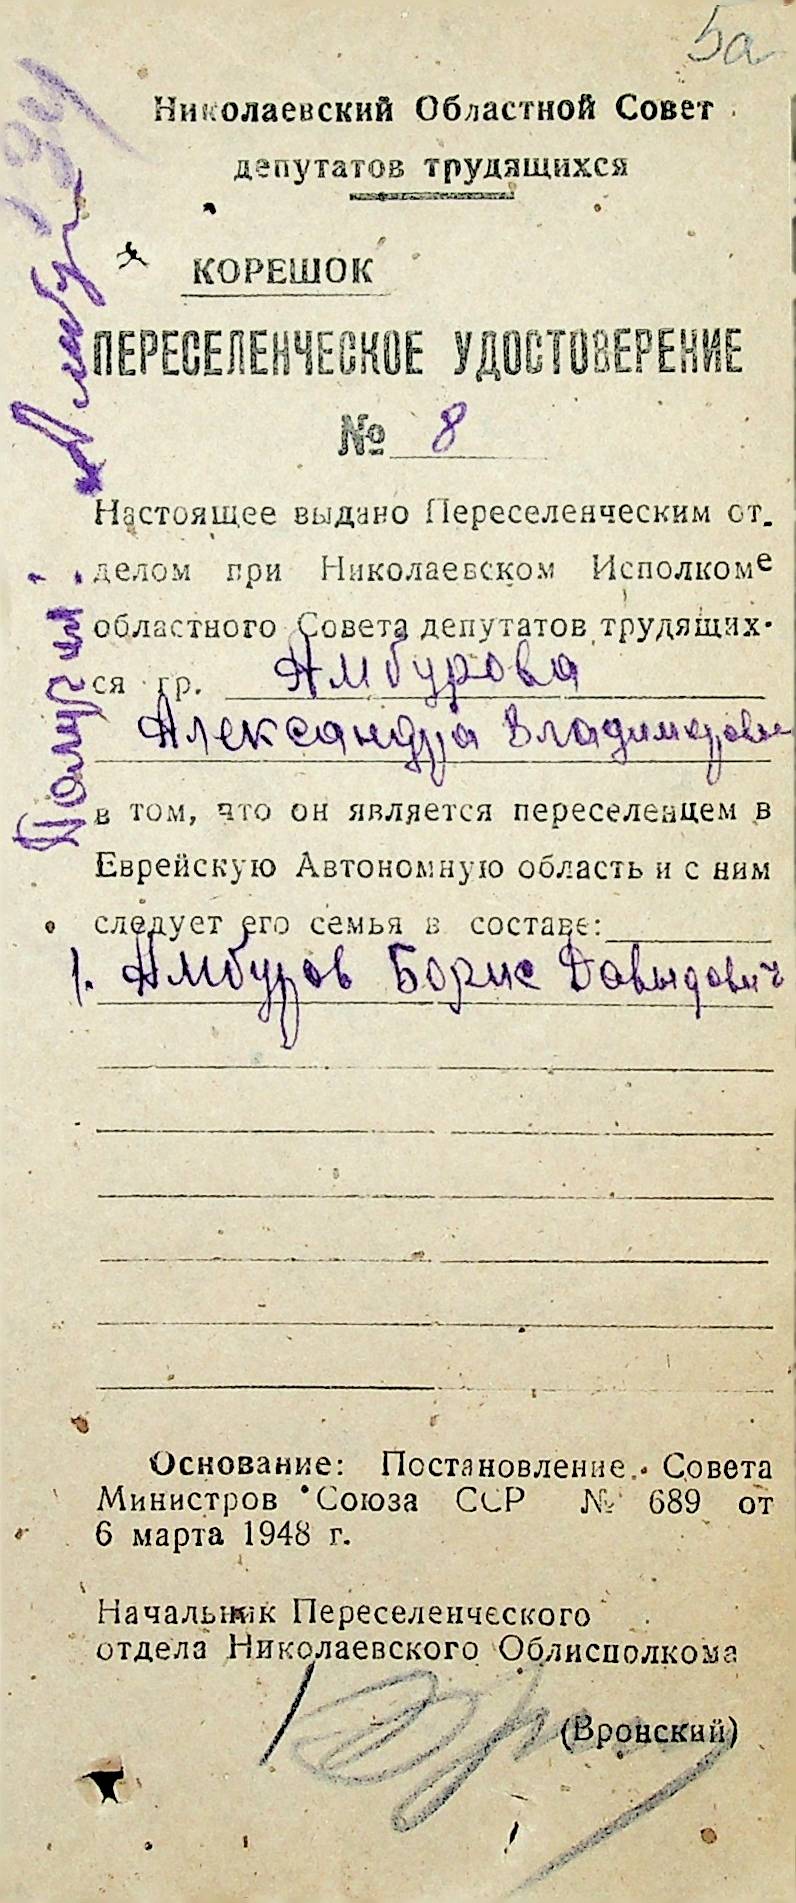 5а
Николаевский Областной Совет
депутатов трудящихся
КОРЕШОК
ПЕРЕСЕЛЕНЧЕСКОЕ УДОСТОВЕРЕНИЕ
№ 8
Настоящее выдано Переселенческим от-
делом при Николаевском Исполкоме
областного Совета депутатов трудящих-
ся гр. Амбурова
Александра Владимировне
в том, что он является переселенцем в
Еврейскую Автономную область и с ним
следует его семья в составе:
1. Амбуров Борис Давыдович
Основание: Постановление Совета
Министров Союза ССР № 689 от
6 марта 1948 г.
Начальник Переселенческого
отдела Николаевского Облисполкома
(Вронский)
Получил: